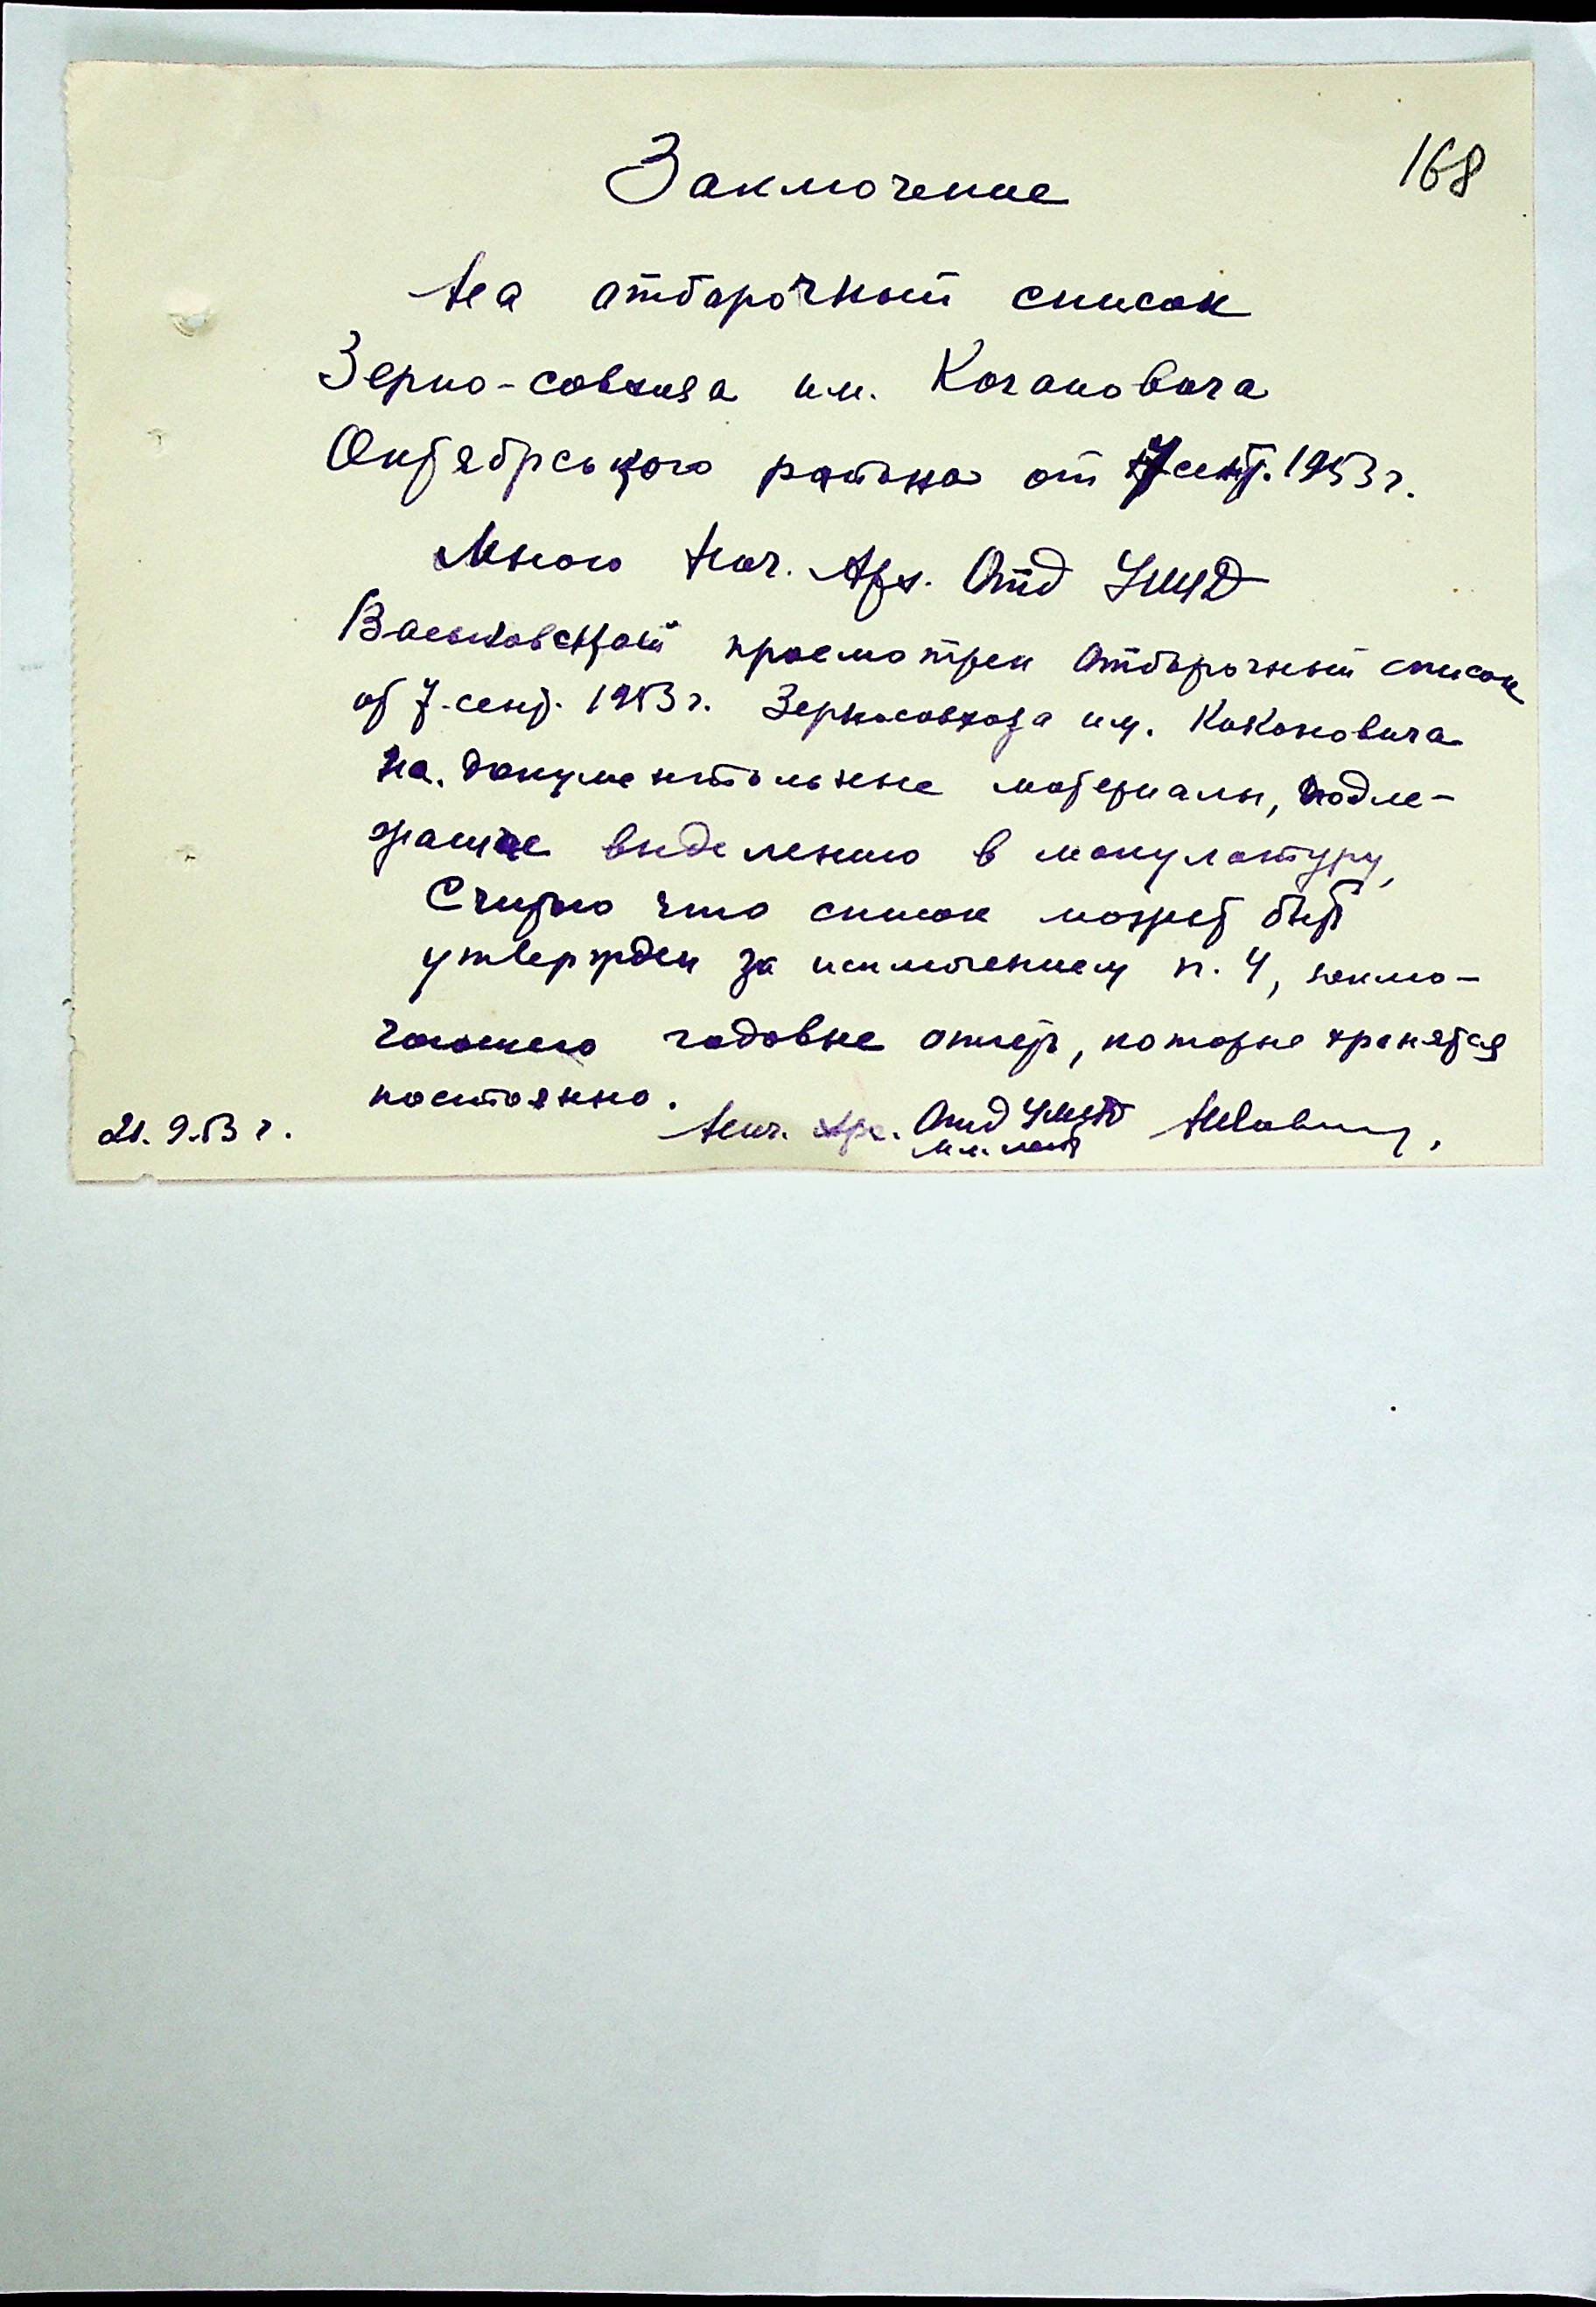 168
Заключение
На отборочный список
Зерно-совхоза им. Кагановича
Октябрьського района от 7 сент. 1953 г.
Мною Нач. Арх. Отд УМВД
Васьковской просмотрен отборочный список
от 7-сент. 1953 г. Зерносовхоза им. Кокановича
на документальные материалы, подле-
жащие выделению в макулатуру,
Считаю что список может быть
утвержден за исключением п. 4, заклю-
чающего годовые отчеты, которые хранятся
постоянно.
21.9.53 г. Нач. Арх. Отд УМВД